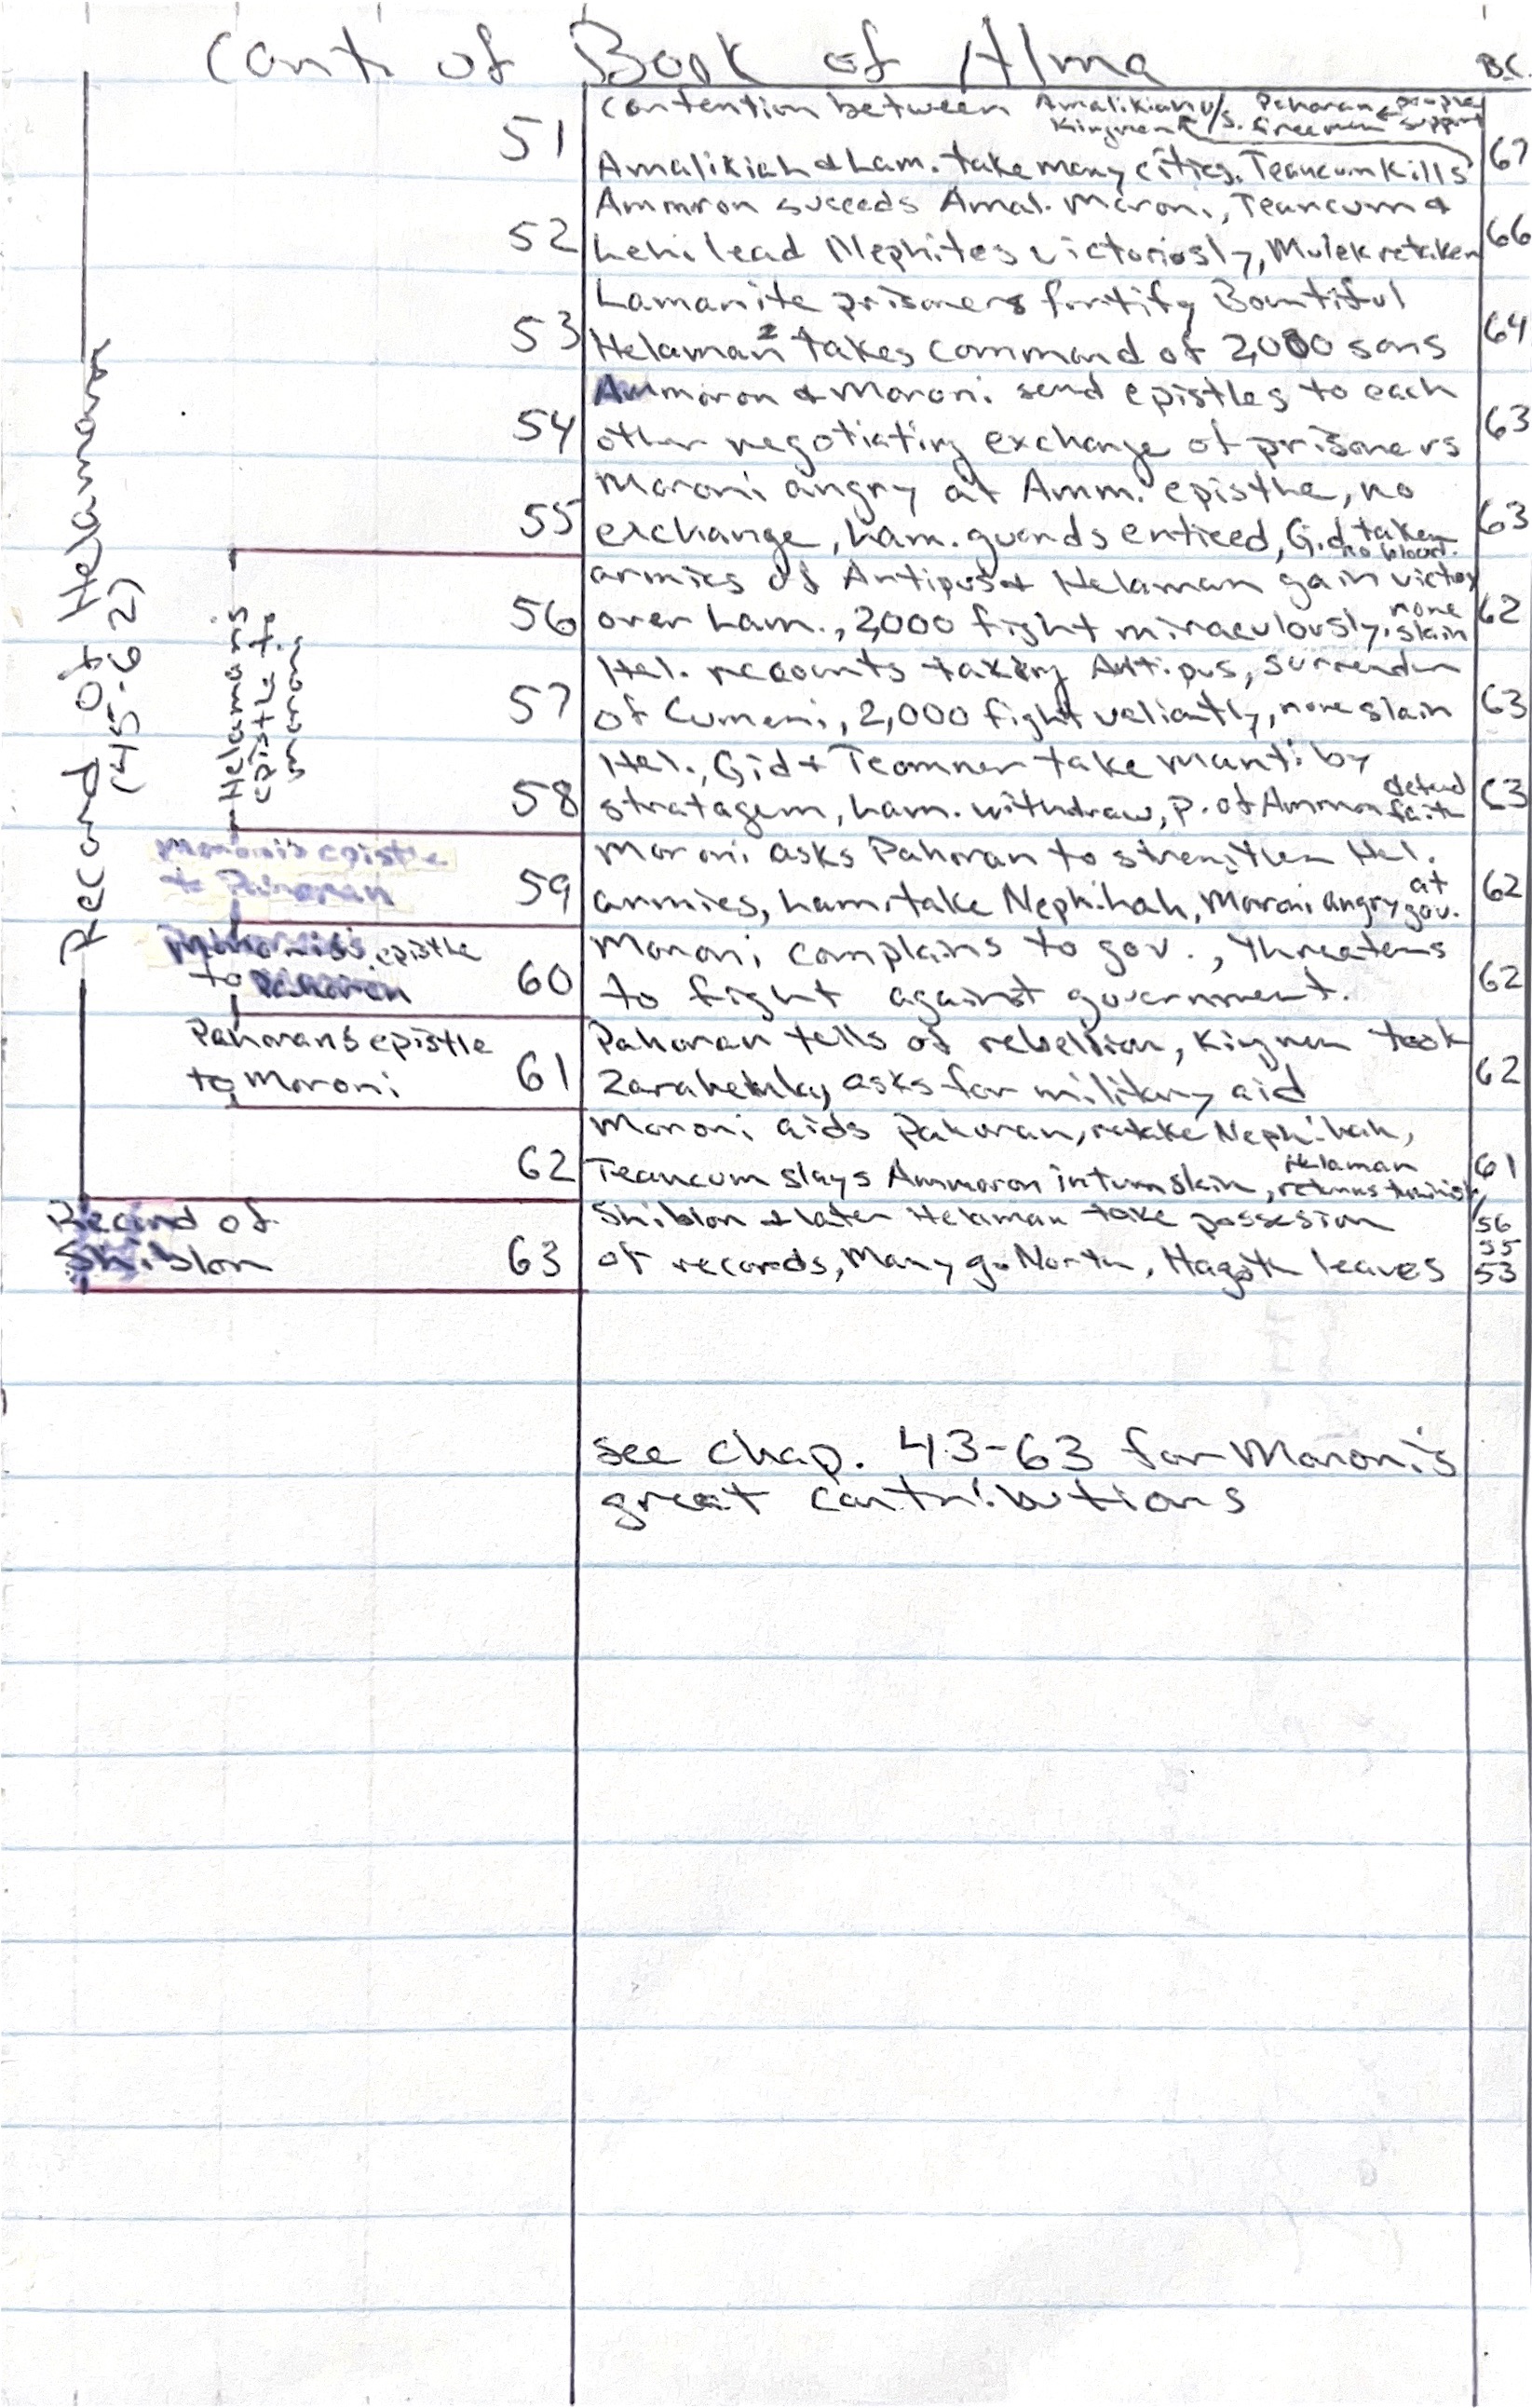 Cont. of Book of Alma
B.C.
Record of Helaman
(45-62)
51
contention between Amalikiah v/s. Pahoran ← people
Kingmen freemen support
Amalikiah & Lam. take many cities. Teancum kills
67
Ammoron succeeds Amal. Moroni, Teancum &
52
Lehi lead Nephites victoriosly, Mulek retaken
66
Lamanite prisoners fortify Bountiful
53
Helaman 2 takes command of 2,000 sons
64
Ammoron & Moroni send epistles to each
54
other negotiating exchange of prisoners
63
Moroni angry at Amm. epistle, no
55
exchange, Lam. guards enticed, Gid taken
no blood.
63
Helaman's
epistle to
Moroni
armies of Antipus & Helaman gain victory
56
over Lam., 2,000 fight miraculously, none
slain
62
Hel. recounts taking Antipus, surrender
57
of Cumeni, 2,000 fight valiantly, none slain
63
Hel., Gid & Teomner take Manti by
58
stratagem, Lam. withdraw, p. of Ammon defend
faith
63
Moroni's epistle
to Pahoran
Moroni asks Pahoran to strengthen Hel.
59
armies, Lam. take Nephihah, Moroni angry at
gov.
62
epistle
to Pahoran
Moroni complains to gov., threatens
60
to fight against government.
62
Pahoran's epistle
to Moroni
Pahoran tells of rebellion, Kingmen took
61
Zarahemla, asks for military aid
62
Moroni aids Pahoran, retake Nephihah,
62
Teancum slays Ammoron in turn slain, Helaman
returns
61
Record of
Shiblon
Shiblon & later Helaman take possesion
63
of records, Many go North, Hagoth leaves
56
55
53
see chap. 43-63 for Moroni's
great contributions